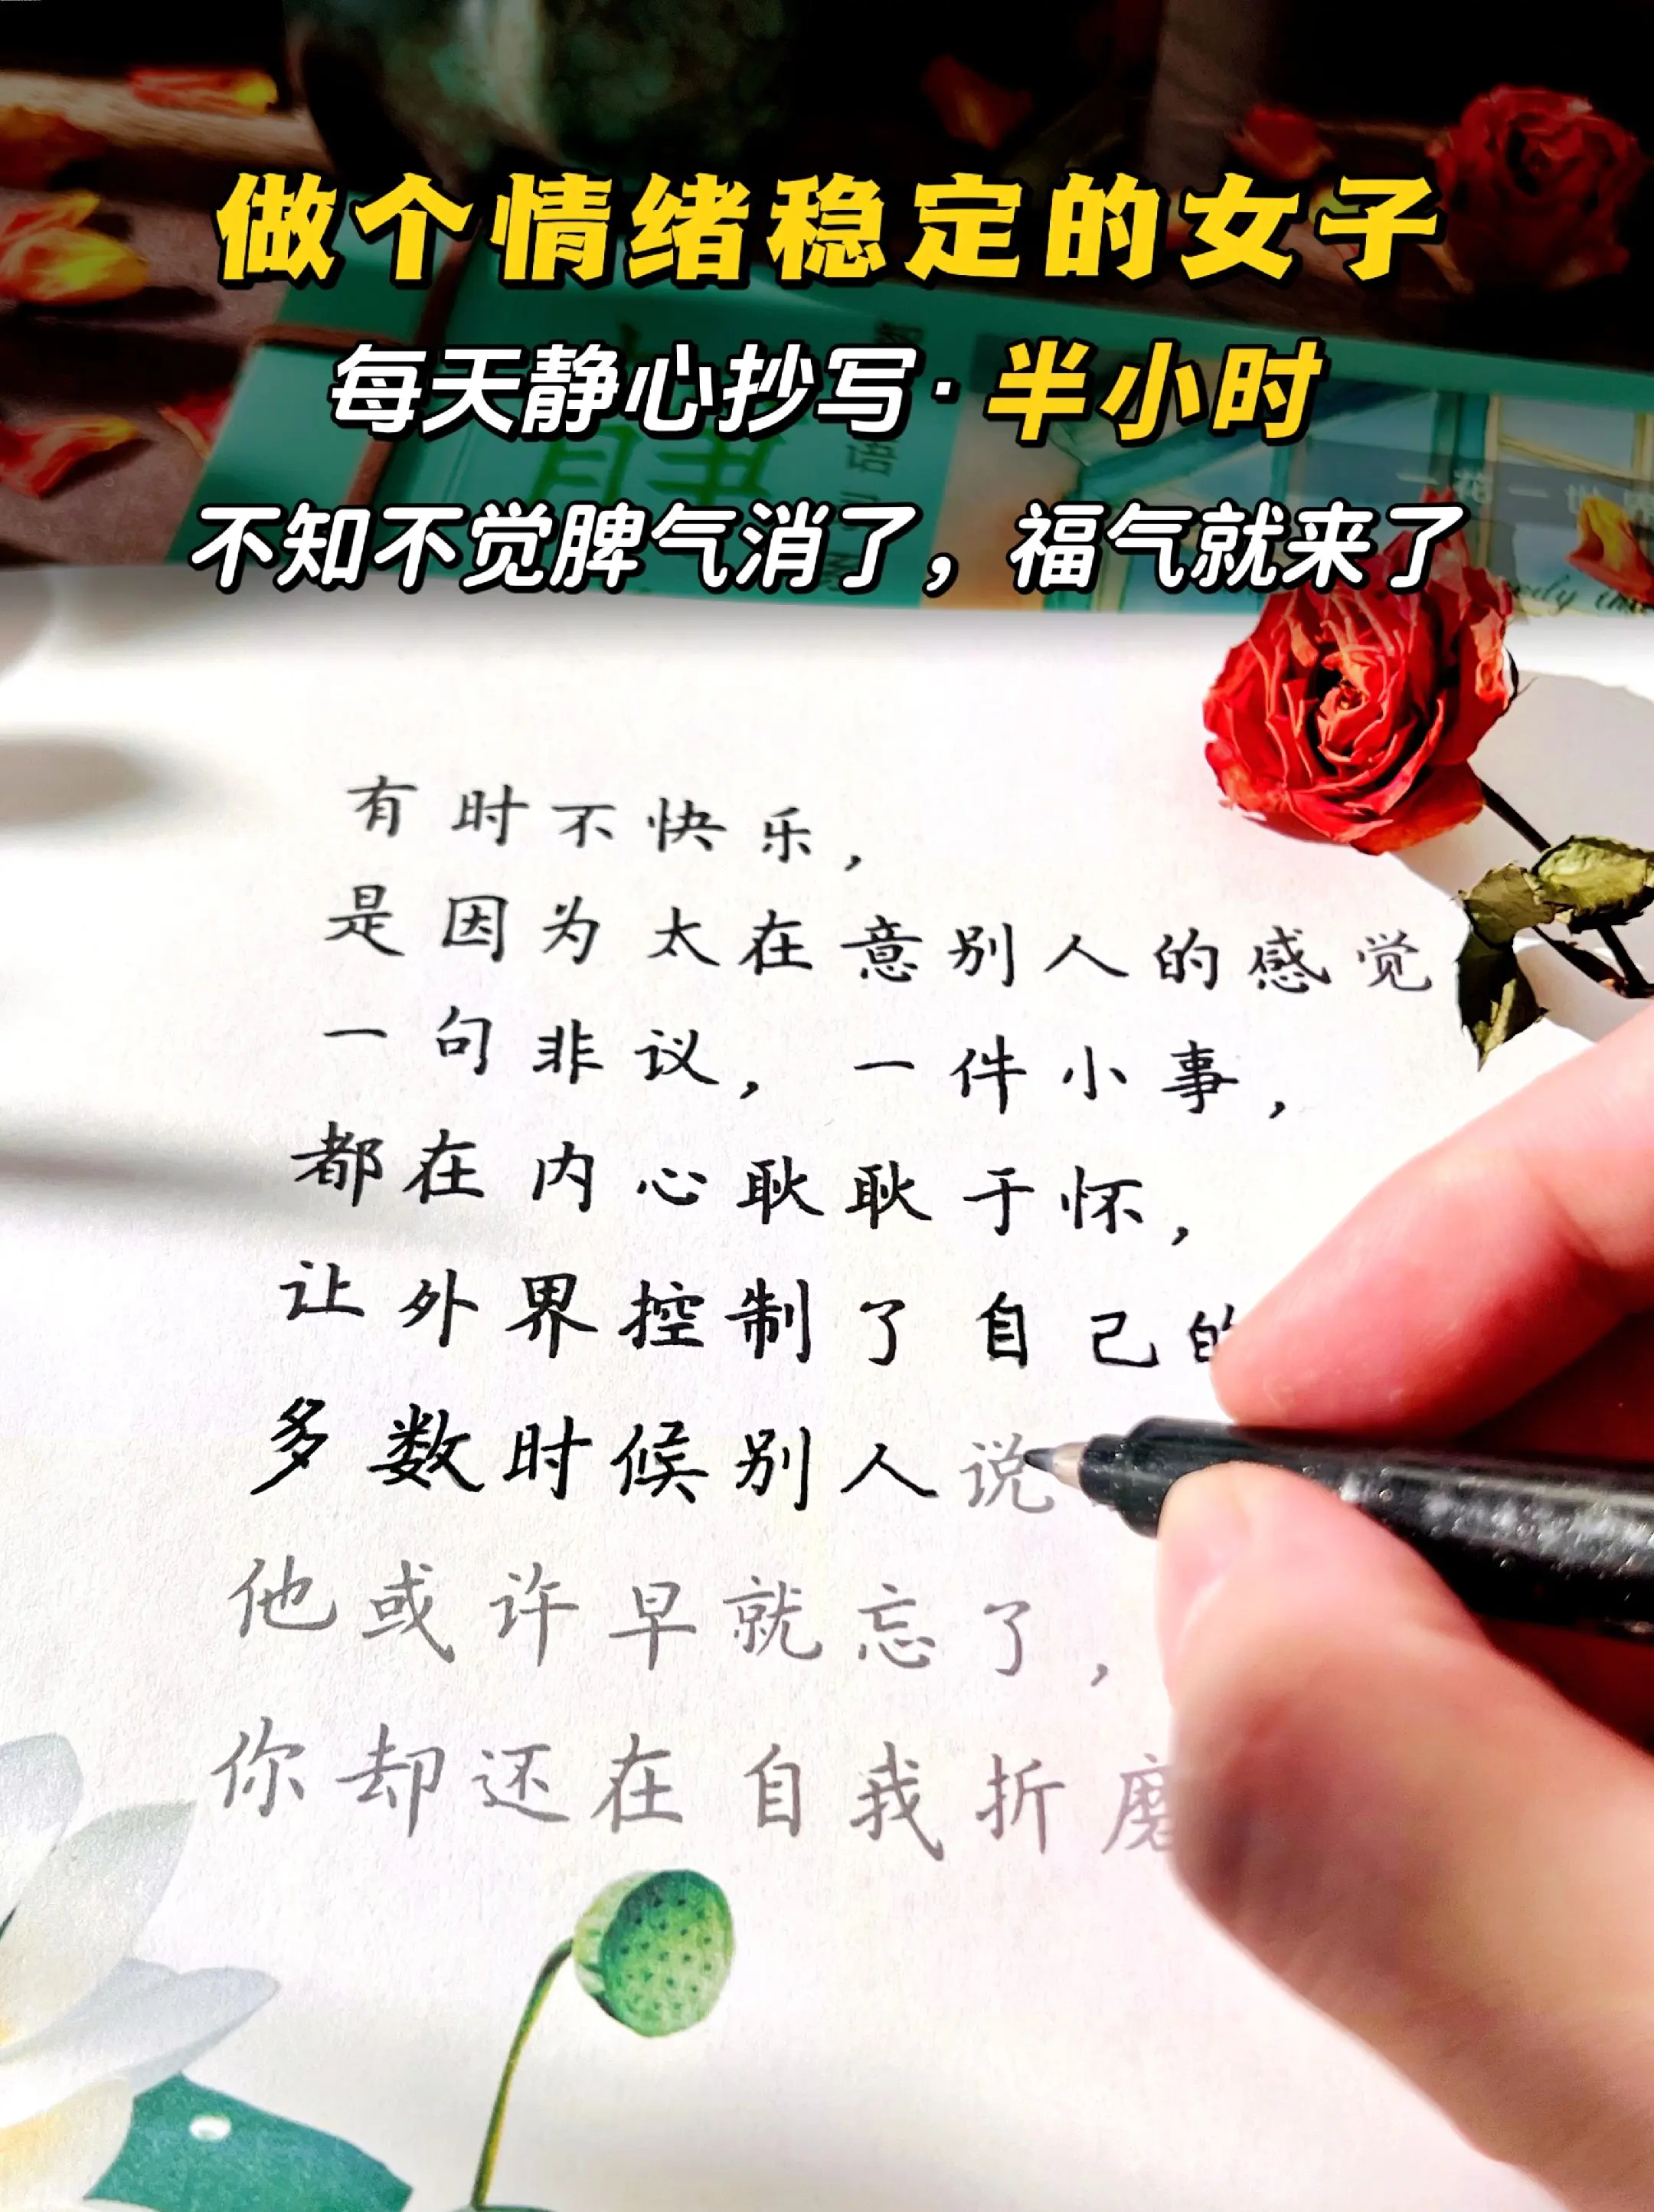 做个情绪稳定的女子
每天静心抄写·半小时
不知不觉脾气消了，福气就来了
语
一花一世界
有时不快乐，
是因为太在意别人的感觉
一句非议，一件小事，
都在内心耿耿于怀，
让外界控制了自己的
多数时候别人说
他或许早就忘了，
你却还在自我折磨